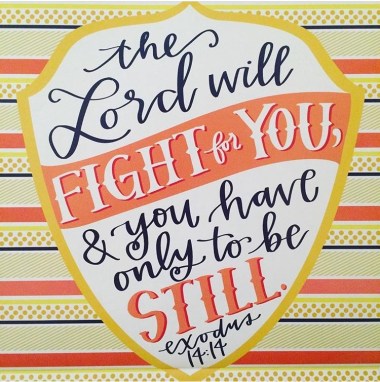 the
Lord will
FIGHT for YOU,
& you have
only to be
STILL.
exodus
14:14